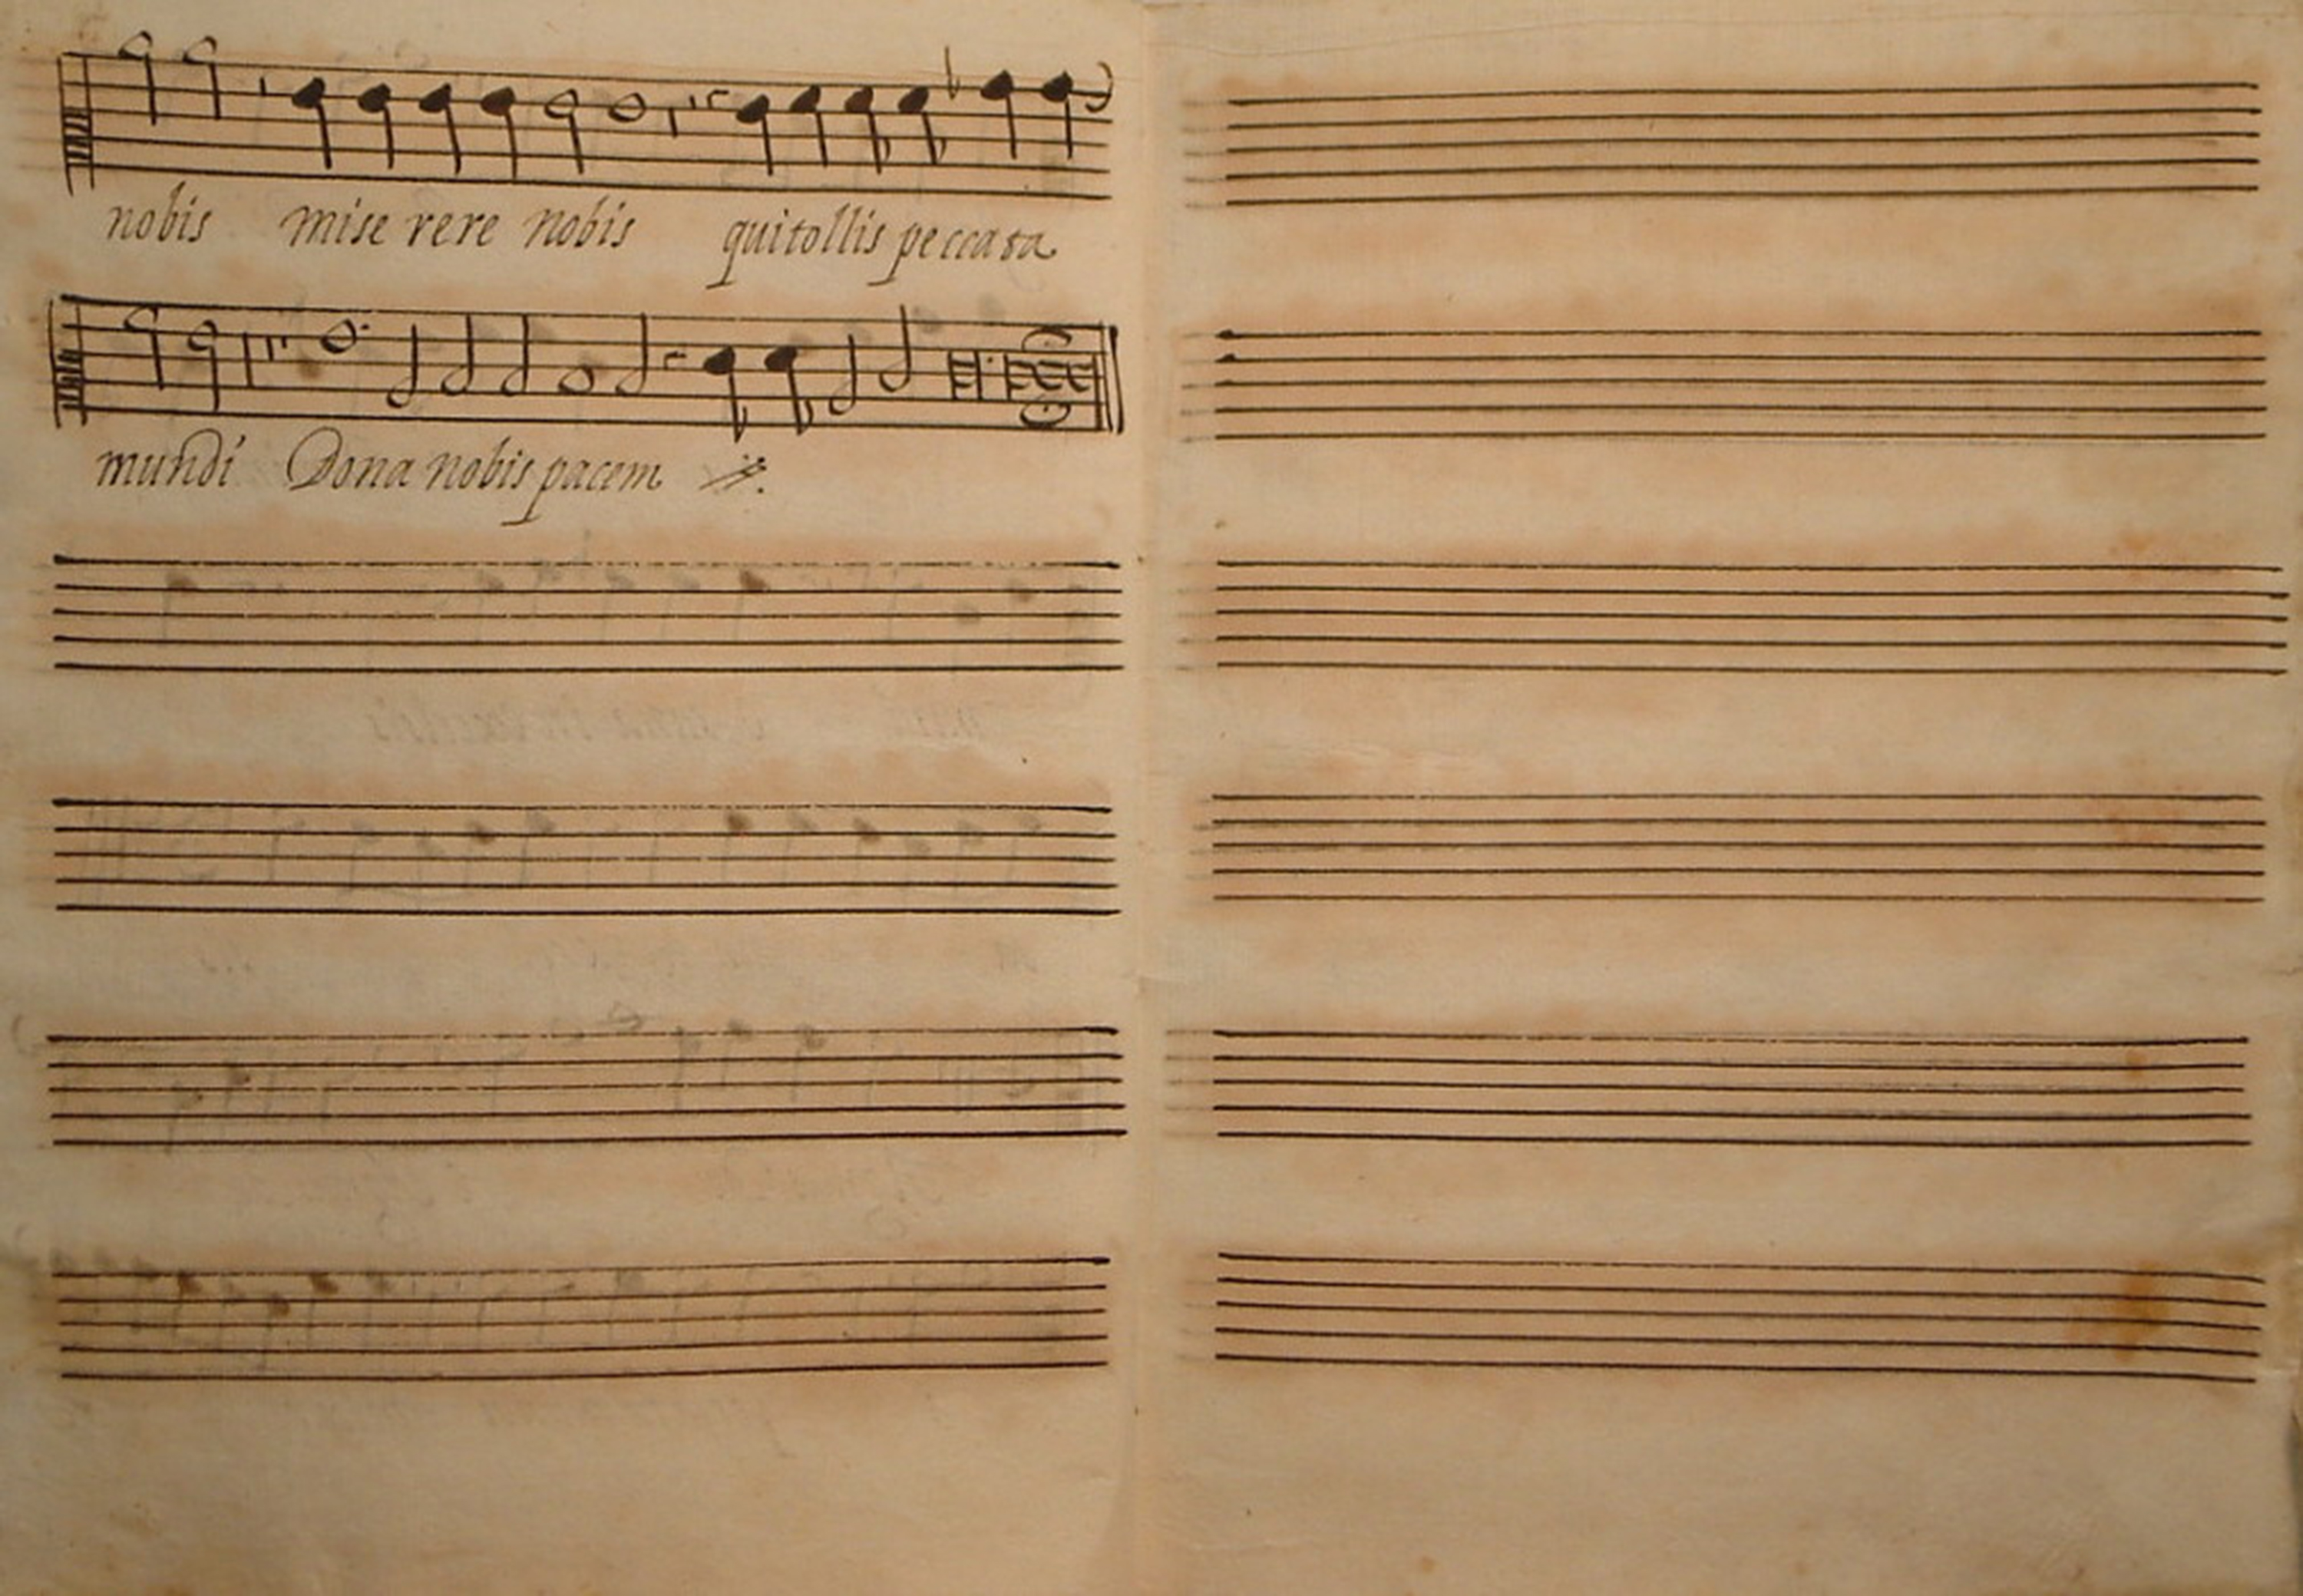 nobis mise rere nobis qui tollis peccata
mundi Dona nobis pacem